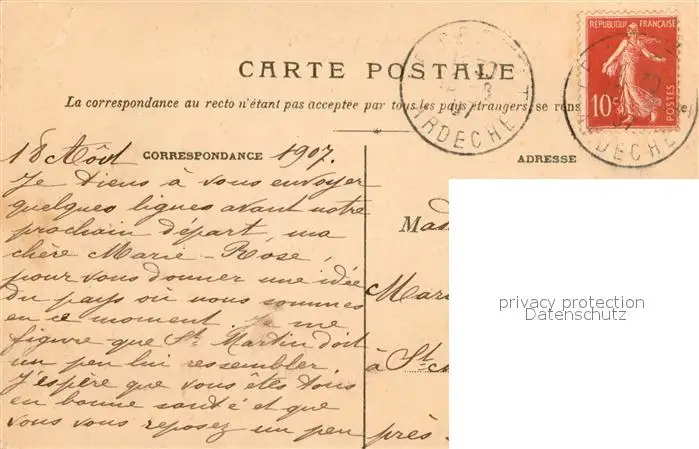 CARTE POSTALE
La correspondance au recto n'étant pas acceptée par tous les pays étrangers, se rens
REPUBLIQUE FRANÇAISE
10c
POSTES
ARDECHE
ARDECHE
CORRESPONDANCE
ADRESSE
18 Aôut 1907.
Je tiens à vous envoyer
quelques lignes avant notre
prochain départ, ma
chère Marie-Rose,
pour vous donner une idée
du pays où nous sommes
en ce moment. Je me
figure que St Martin doit
un peu lui ressembler.
J'espère que vous êtes tous
en bonne santé et que
vous vous reposez un peu
Mad
Mar
à St
près
privacy protection
Datenschutz